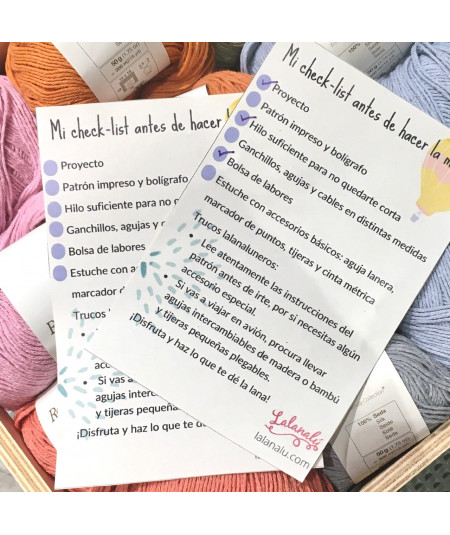 50 g (1.75 oz)
Mi check-list antes de hacer
Proyecto
Patrón impreso y bolígrafo
Hilo suficiente para no
Ganchillos, agujas y
Bolsa de labores
Estuche con
marcador de
Trucos
Si vas a
agujas
y tijeras pequeña
¡Disfruta y haz lo que te dé
Mi check-list antes de hacer la
Proyecto
Patrón impreso y bolígrafo
Hilo suficiente para no quedarte corta
Ganchillos, agujas y cables en distintas medidas
Bolsa de labores
Estuche con accesorios básicos: aguja lanera,
marcador de puntos, tijeras y cinta métrica
Trucos lalanaluneros:
• Lee atentamente las instrucciones del
patrón antes de irte, por si necesitas algún
accesorio especial.
• Si vas a viajar en avión, procura llevar
agujas intercambiables de madera o bambú
y tijeras pequeñas plegables.
¡Disfruta y haz lo que te dé la lana!
Lalanalú
lalanalu.com
100% Seda
Silk
Soie
Seide
50 g (1.75 oz)